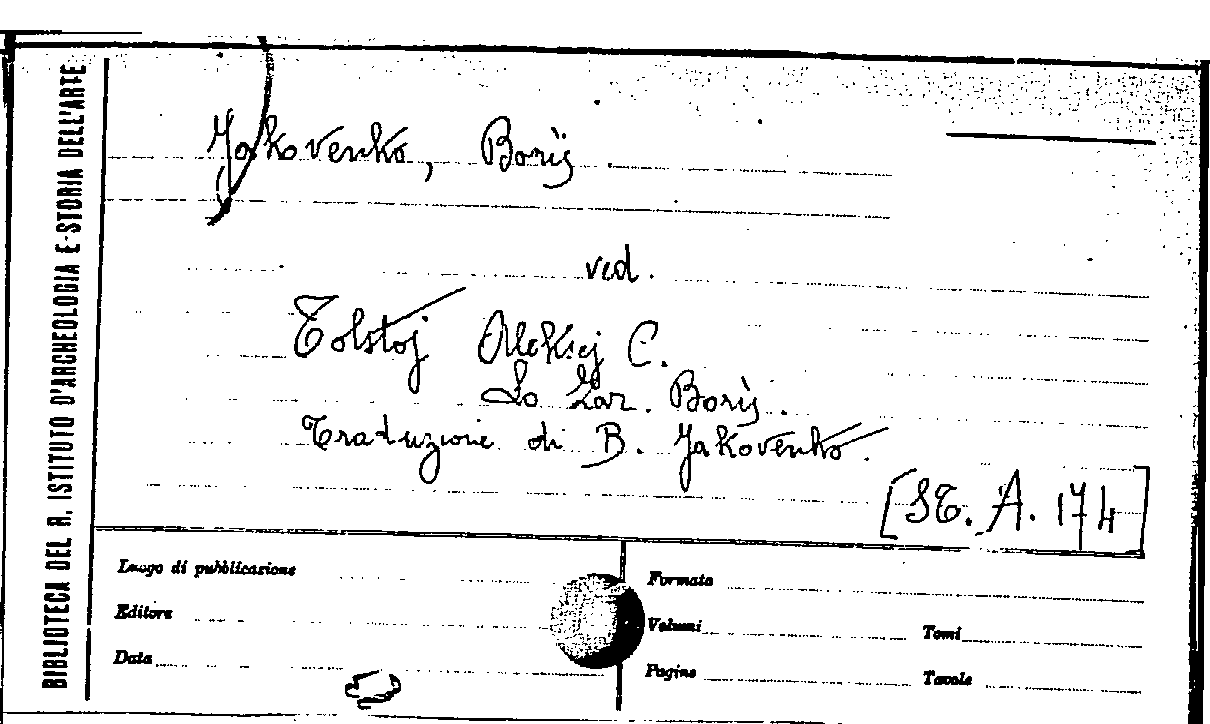 BIBLIOTECA DEL R. ISTITUTO D'ARCHEOLOGIA E STORIA DELL'ARTE
Jakovenko, Boris
ved.
Tolstoj Aleksej C.
Lo Zar. Boris.
Traduzione di B. Jakovenko.
[ST. A. 174]
Luogo di pubblicazione
Formato
Editore
Volumi
Tomi
Data
Pagine
Tavole